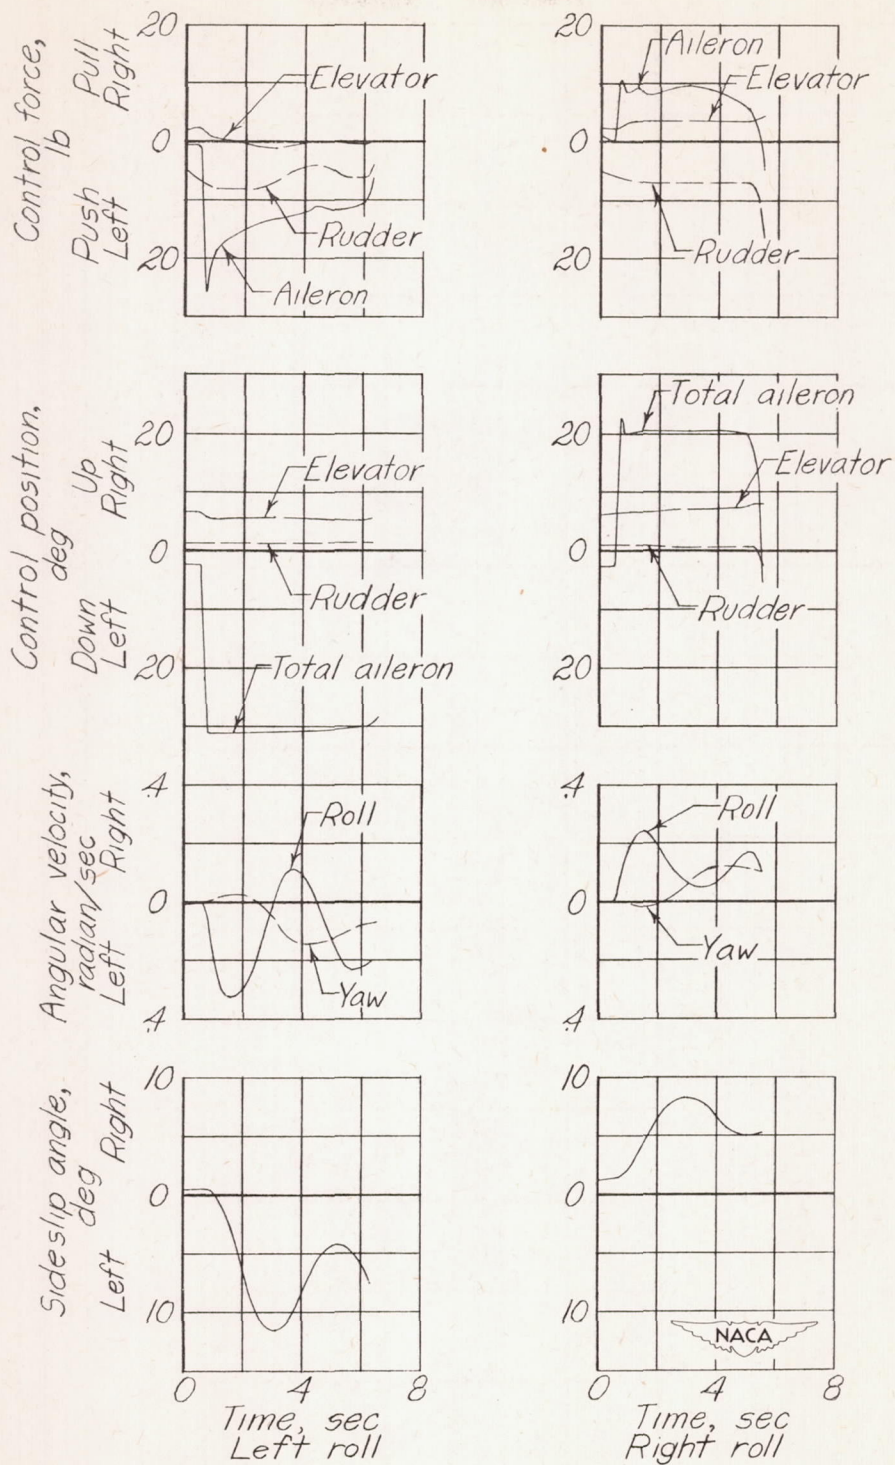 Control force,
lb
Pull
Right
Push
Left
20
0
20
Elevator
Rudder
Aileron
20
0
20
Aileron
Elevator
Rudder
Control position,
deg
Up
Right
Down
Left
20
0
20
Elevator
Rudder
Total aileron
20
0
20
Total aileron
Elevator
Rudder
Angular velocity,
radian/sec
Right
Left
.4
0
.4
Roll
Yaw
.4
0
.4
Roll
Yaw
Sideslip angle,
deg
Right
Left
10
0
10
10
0
10
NACA
0 4 8
Time, sec
Left roll
0 4 8
Time, sec
Right roll